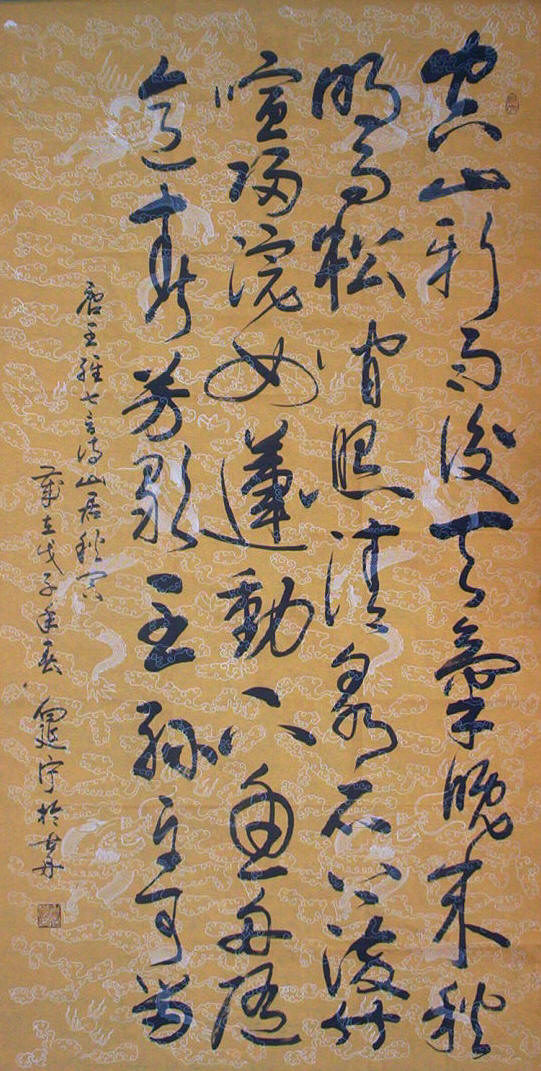 空山新雨後天氣晚来秋
明月松間照清泉石上流竹
喧歸浣女蓮動下魚舟隨
意春芳歇王孫自可留
唐王維七言詩山居秋冥
歲在戊子年春 延宇於